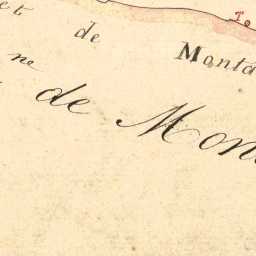 To
et de Monta
ne
de Mon